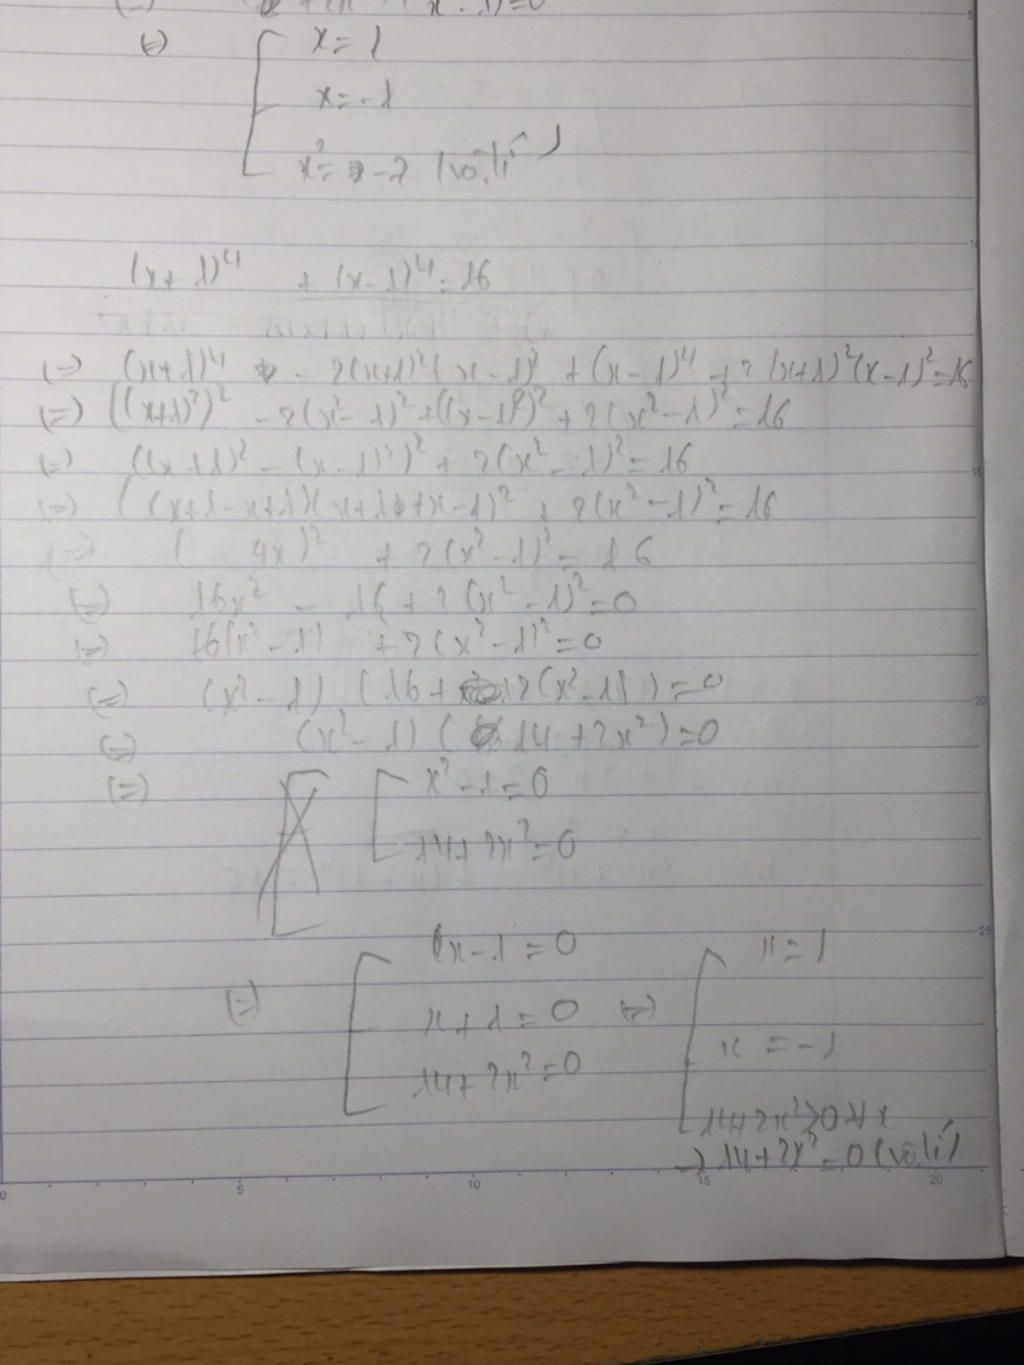 (x-1)=0
(=) x=1
x=-1
x²=-7 (vô lí)
(x+1)⁴ + (x-1)⁴=16
(=) (x+1)⁴ - 2(x+1)²(x-1)² + (x-1)⁴ + 2(x+1)²(x-1)²=16
(=) ((x+1)²)² - 2(x²-1)² + ((x-1)²)² + 2(x²-1)²=16
(=) ((x+1)² - (x-1)²)² + 2(x²-1)²=16
(=) ((x+1-x+1)(x+1+x-1)² + 2(x²-1)²=16
(=) (4x)² + 2(x²-1)²=16
(=) 16x² - 16 + 2(x²-1)²=0
(=) 16(x²-1) + 2(x²-1)²=0
(=) (x²-1) (16+2(x²-1))=0
(=) (x²-1) (14+2x²)=0
(=) x²-1=0
14+2x²=0
x-1=0 x=1
(=) x+1=0 (=) x=-1
14+2x²=0
14+2x²>0 ∀x
→ 14+2x²=0 (vô lí)